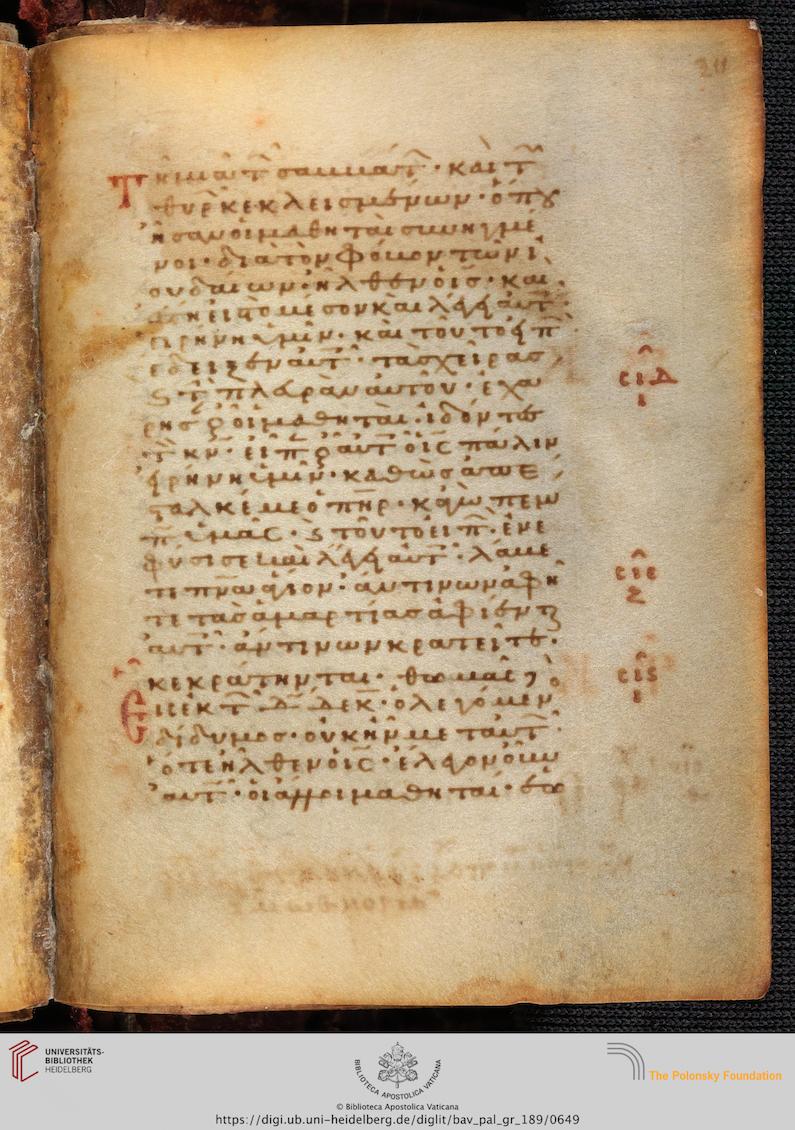 Τῇ μιᾷ τ̅ σαββάτ̅ · καὶ τ̅
θυρ̅ κεκλεισμένων · ὅπου
ἦσαν οἱ μαθηταὶ συνηγμέ
νοι · διὰ τὸν φόβον τῶν ἰ
ουδαίων · ἦλθεν ὁ ις̅ · καὶ
ἔστη εἰς τὸ μέσον καὶ λέγει αὐτ̅ ·
εἰρήνη ὑμῖν · καὶ τοῦτο εἰπ̅
ἔδειξεν αὐτ̅ · τὰς χεῖρας
ϛ τ̅ πλευρὰν αὐτοῦ · ἐχά
ρησ̅ οὖν οἱ μαθηταὶ · ἰδόντες
τ̅ κν̅ · εἶπ̅ οὖν αὐτ̅ ὁ ις̅ πάλιν
εἰρήνη ὑμῖν · καθὼς ἀπέ
σταλκέ με ὁ πηρ̅ · κἀγὼ πέμ
π̅ ὑμᾶς · ϛ τοῦτο εἰπ̅ · ἐνε
φύσησε καὶ λέγει αὐτ̅ · λάβε
τε πνα̅ ἅγιον · ἄν τινων ἀφῆ
τε τὰς ἁμαρτίας ἀφίεντ̅
αὐτ̅ · ἄν τινων κρατεῖτε ·
κεκράτηνται · θωμᾶς δὲ ὁ
εἷς ἐκ τ̅ δώδεκ̅ · ὁ λεγόμεν̅
δίδυμος · οὐκ ἦν μετ' αὐτ̅
ὅτε ἦλθεν ὁ ις̅ · ἔλεγον οὖν
αὐτ̅ · οἱ ἄλλοι μαθηταί · ἑω
σιδ
ι
σιε
ζ
σις
ι
UNIVERSITÄTS-
BIBLIOTHEK
HEIDELBERG
BIBLIOTECA APOSTOLICA VATICANA
The Polonsky Foundation
© Biblioteca Apostolica Vaticana
https://digi.ub.uni-heidelberg.de/diglit/bav_pal_gr_189/0649